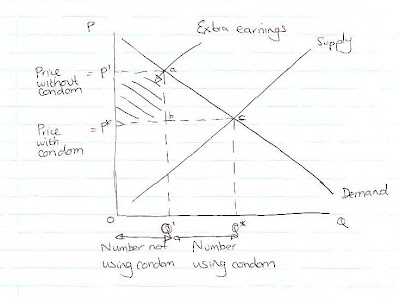 P
Extra earnings
Supply
Price
without
condom
= P'
a
b
Price
with
condom
= P*
c
Demand
O
Q'
Q*
Q
Number not
using condom
Number
using condom